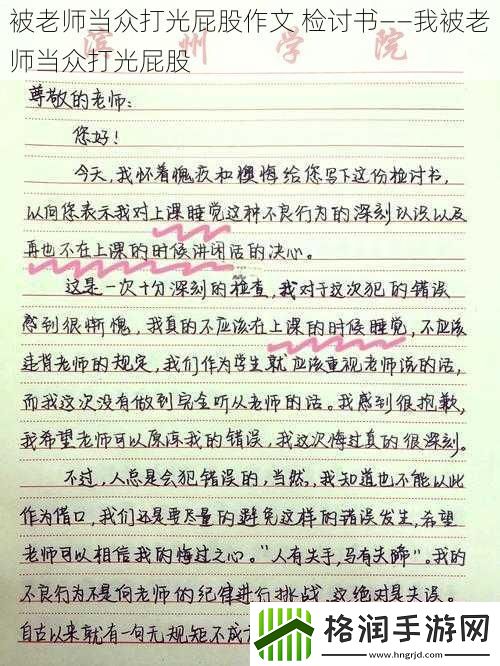 被老师当众打光屁股作文 检讨书——我被老
师当众打光屁股
滨州学院
尊敬的老师：
您好！
今天，我怀着愧疚和懊悔给您写下这份检讨书，
以向您表示我对上课睡觉这种不良行为的深刻认识以及
再也不在上课的时候讲闲话的决心。
这是一次十分深刻的检查，我对于这次犯的错误
感到很惭愧，我真的不应该在上课的时候睡觉，不应该
违背老师的规定，我们作为学生就应该重视老师说的话，
而我这次没有做到完全听从老师的话。我感到很抱歉，
我希望老师可以原谅我的错误，我这次悔过真的很深刻。
不过，人总是会犯错误的，当然，我知道也不能以此
作为借口，我们还是要尽量的避免这样的错误发生，希望
老师可以相信我的悔过之心。“人有失手，马有失蹄”。我的
不良行为不是向老师的纪律进行挑战，这绝对是失误。
自古以来就有一句无规矩不成方
格润手游网
www.hngrjd.com